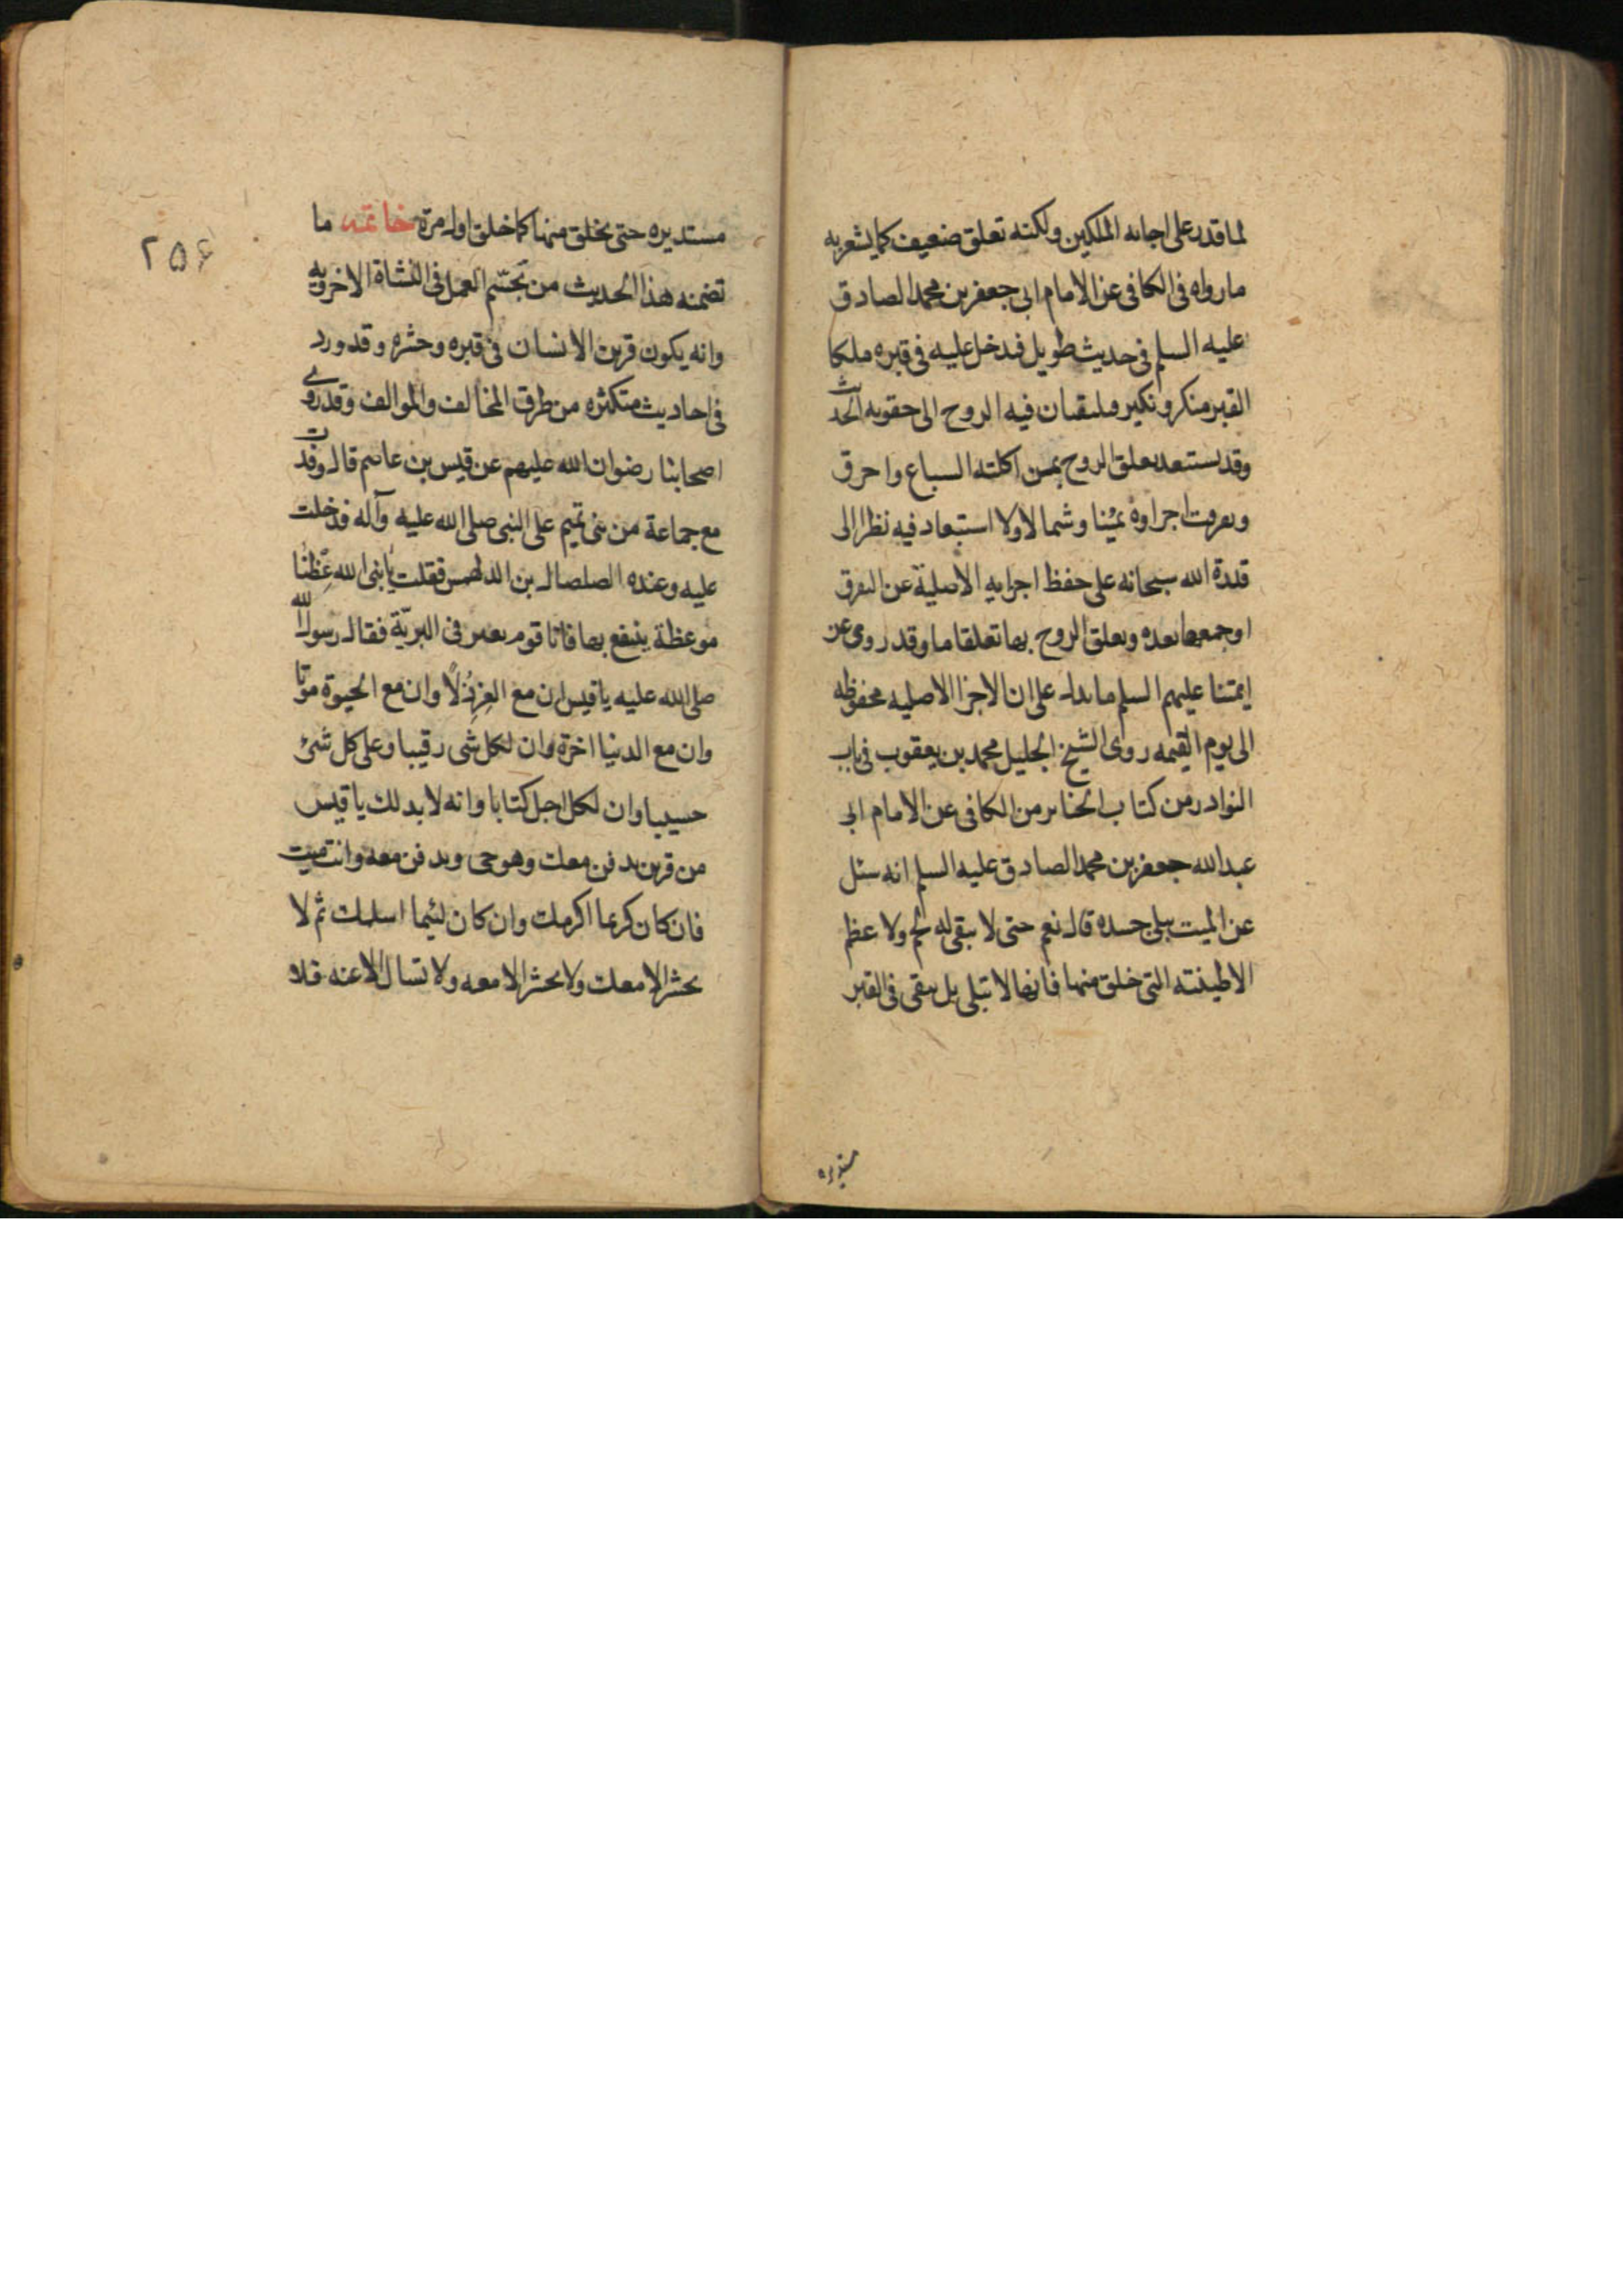 لما قدر على اجابه الملكين ولكنه تعلق ضعيف كما يشعر به
ما رواه فى الكافى عن الامام ابى جعفر بن محمد الصادق
عليه السلم فى حديث طويل فيدخل عليه فى قبره ملكا
القبر منكر ونكير فيلقيان فيه الروح الى حقويه الحديث
وقد يستبعد تعلق الروح بمن اكلته السباع واحرق
وتفرقت اجزاوه يمينا وشمالا ولا استبعاد فيه نظرا الى
قدرة الله سبحانه على حفظ اجزايه الاصلية عن التفرق
او جمعها بعده وتعلق الروح بها تعلقا ما وقد روى عن
ايمتنا عليهم السلم ما يدل على ان الاجزا الاصليه محفوظه
الى يوم القيمه روى الشيخ الجليل محمد بن يعقوب فى باب
النوادر من كتاب الجنايز من الكافى عن الامام ابى
عبدالله جعفر بن محمد الصادق عليه السلم انه سئل
عن الميت يبلى جسده قال نعم حتى لا يبقى له لحم ولا عظم
الا طينته التى خلق منها فانها لا تبلى بل يبقى فى القبر
مستديره
٢٥٦
مستديره حتى يخلق منها كما خلق اول مرة خاتمه ما
تضمنه هذا الحديث من تجسّم العمل فى النشاة الاخرويه
وانه يكون قرين الانسان فى قبره وحشره وقد ورد
فى احاديث متكثره من طرق المخالف والموالف وقد روى
اصحابنا رضوان الله عليهم عن قيس بن عاصم قال وفدت
مع جماعة من بنى تميم على النبى صلى الله عليه وآله فدخلت
عليه وعنده الصلصال بن الدلهمس فقلت يا نبى الله عِظْنا
موعظة ينتفع بها فانا قوم نعبر فى البريّة فقال رسول الله
صلى الله عليه يا قيس ان مع العز ذُلًّا وان مع الحيوة موتا
وان مع الدنيا اخرة وان لكل شى رقيبا وعلى كل شئ
حسيبا وان لكل اجل كتابا وانه لا بد لك يا قيس
من قرين يدفن معك وهو حى ويدفن معه وانت ميت
فان كان كريما اكرمك وان كان لئيما اسلمك ثم لا
يحشر الا معك ولا تحشر الا معه ولا تسال الا عنه فلا